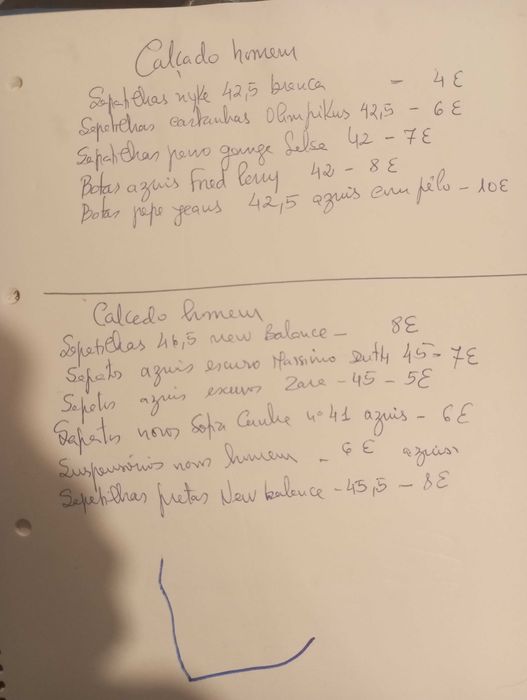 Calçado homem
Sapatilhas nyke 42,5 branca - 4€
Sapatilhas castanhas Olimpikus 42,5 - 6€
Sapatilhas pano ganga Salsa 42 - 7€
Botas azuis Fred Perry 42 - 8€
Botas pepe jeans 42,5 azuis com pêlo - 10€
Calçado homem
Sapatilhas 46,5 new Balance - 8€
Sapatos azuis escuro Massimo Dutti 45 - 7€
Sapatos azuis escuros Zara - 45 - 5€
Sapatos novos Sofa nº 41 azuis - 6€
Suspensórios novos homem - 6€ azuis
Sapatilhas pretas New balance - 45,5 - 8€